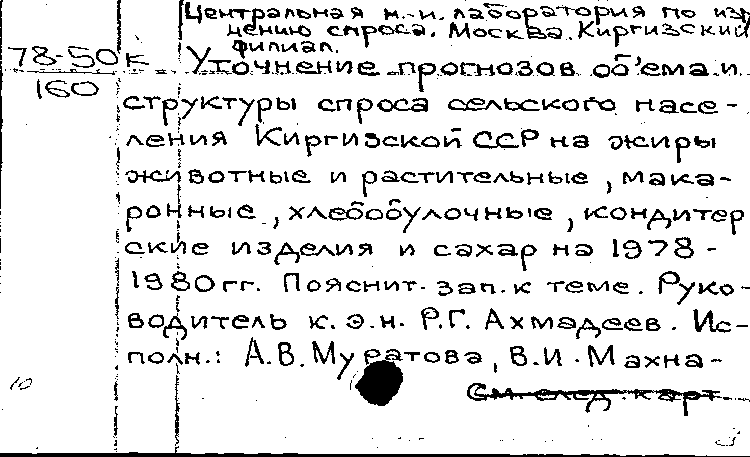 Центральная н.-и. лаборатория по изу
чению спроса. Москва. Киргизский
филиал.
78-50к Уточнение прогнозов об'ема и
160
структуры спроса сельского насе-
ления Киргизской ССР на жиры
животные и растительные, мака-
ронные, хлебобулочные, кондитер
ские изделия и сахар на 1978-
1980гг. Пояснит. зап. к теме. Руко-
водитель к.э.н. Р.Г. Ахмадеев. Ис-
полн.: А.В. Муратова, В.И. Махна-
10
См. след. карт.
3